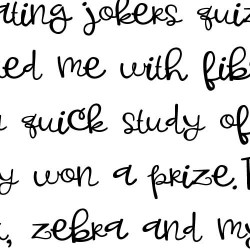 ating jokers quiz
ed me with fib
quick study of
y won a prize.
, zebra and m